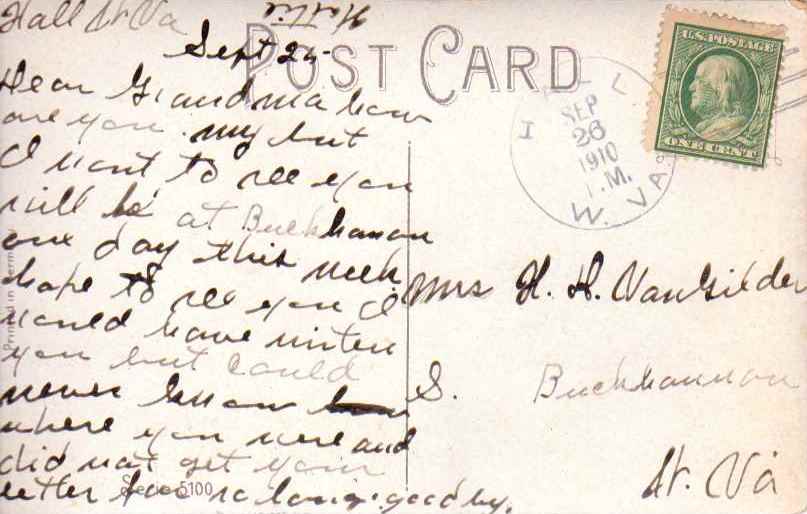 Hall W. Va
Hattie
Sept 25-
POST CARD
U.S. POSTAGE
ONE CENT
HALL
SEP
26
1910
W. VA.
Dear Grandma how
are you. my but
I want to see you
will be at Buckhanon
one day this week
hope to see you I
would have writen
you but could
never know
where you were and
did not get your
letter for so long. good by.
Mrs H. H. VanGilder
S. Buckhannon
W. Va
Printed in Germany
Serie 5100